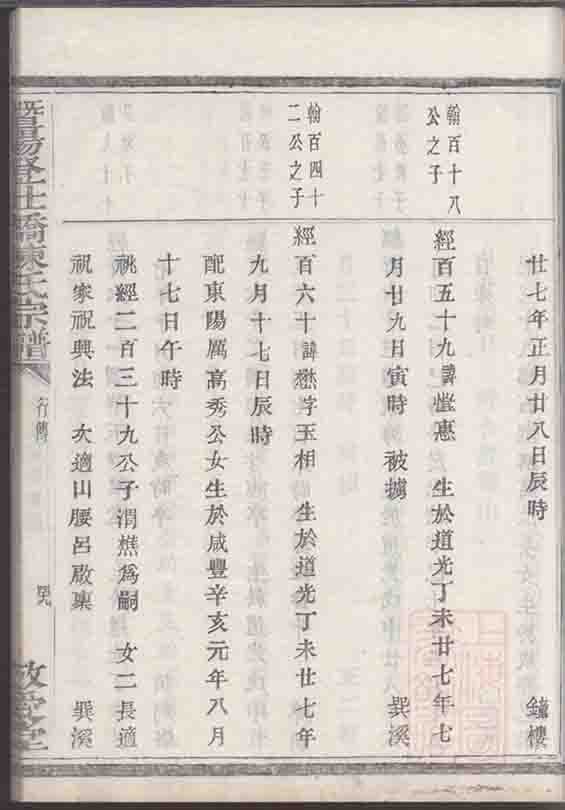 廿七年正月廿八日辰時 鐘樓
翰百十八
公之子
經百五十九諱愷憲 生於道光丁未廿七年七
月廿九日寅時 被擄 巽溪
翰百四十
二公之子
經百六十諱懋字玉相 生於道光丁未廿七年
九月十七日辰時
配東陽厲高秀公女生於咸豐辛亥元年八月
十七日午時
祧經二百三十九公子渭樵爲嗣 女二長適
祝家祝興法 次適山腰呂啟稟 巽溪
行傳